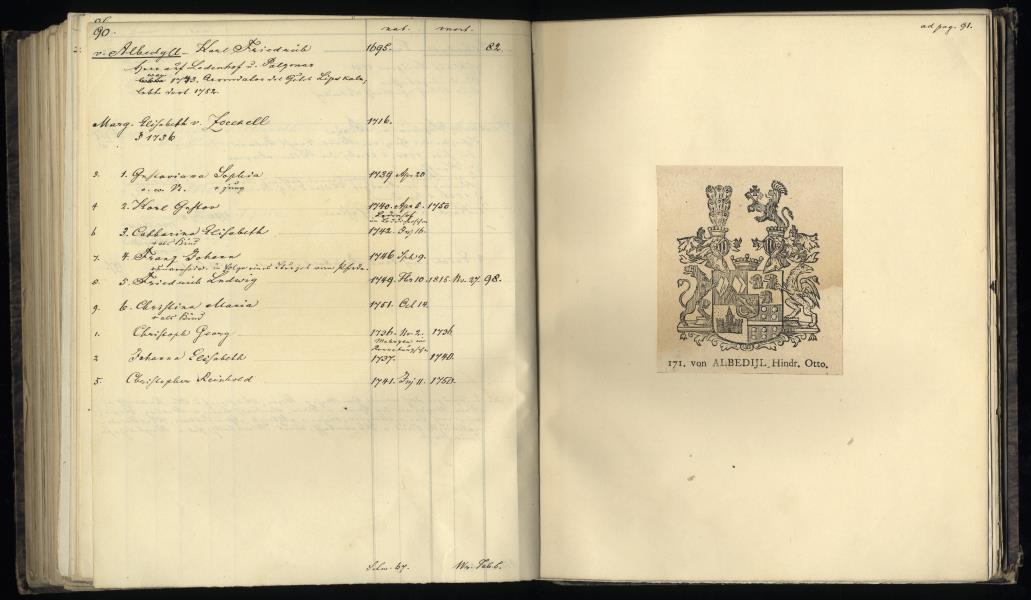 90.
nat. mort.
v. Albedyll - Karl Friedrich 1695. 82.
Herr auf Lodenhof u. Palzmar
1743. Arrendator des Guts Lipskaln,
lebte dort 1752.
Marg. Elisabeth v. Zoeckell 1716.
1736
3. 1. Gustaviana Sophia 1739 Apr. 20
v. w. N. + jung
4 2. Karl Gustav 1740. Apr. 6. 1750
Lodenhof
6 3. Catharina Elisabeth 1742. Juj 16.
+ als Kind
7. 4. Franz Johann 1746 Spt. 9.
in Folge eines Sturzes vom Pferde.
8 5. Friedrich Ludwig 1749. Fbr. 10. 1815. Nv. 27. 98.
9. 6. Christina Maria 1751. Oct 14.
+ als Kind
1. Christoph Georg 1736. Nv. 2. 1736
2 Johanna Elisabeth 1737. 1740.
5. Christopher Reinhold 1741. Juj 11. 1750.
ad pag. 91.
171. von ALBEDIJL, Hindr. Otto.